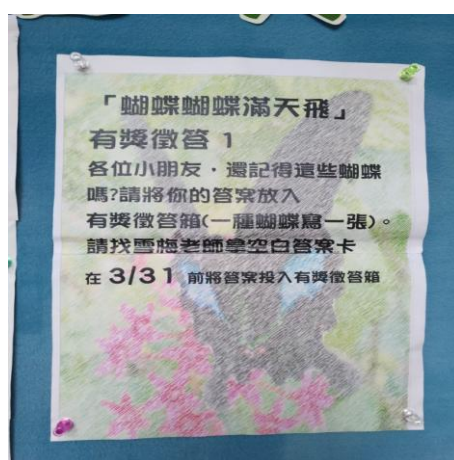 「蝴蝶蝴蝶滿天飛」
有獎徵答 1
各位小朋友,還記得這些蝴蝶
嗎?請將你的答案放入
有獎徵答箱(一種蝴蝶寫一張)。
請找雪梅老師拿空白答案卡
在 3/31 前將答案投入有獎徵答箱